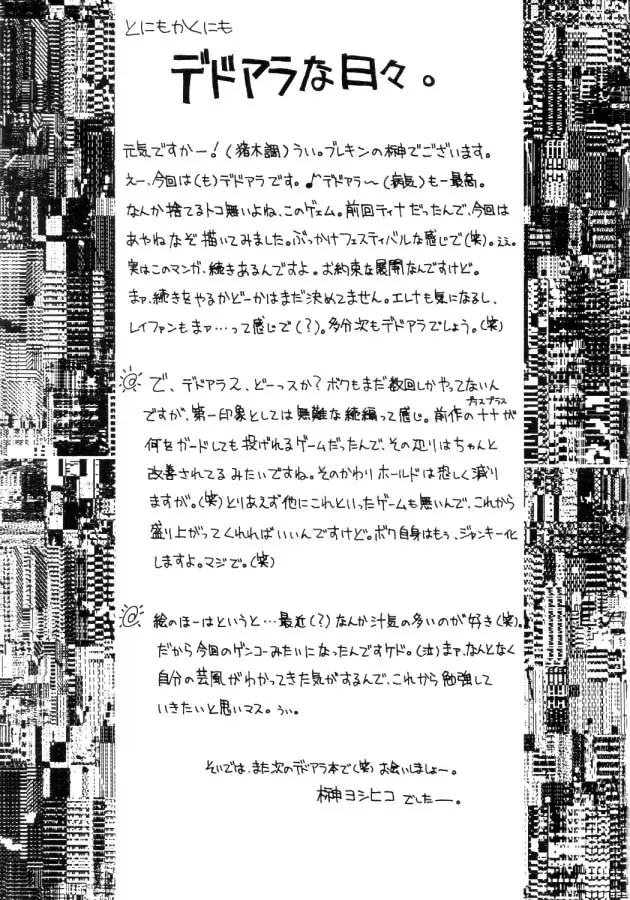 とにもかくにも
デドアラな日々。
元気ですかー!(猪木調)うい。ブレキンの榊でございます。
えー、今回は(も)デドアラです。♪デドアラ〜(病気)もー最高。
なんか捨てるトコ無いよね、このゲェム。前回ティナだったんで、今回は
あやねなぞ描いてみました。ぶっかけフェスティバルな感じで(笑)。ええ。
実はこのマンガ、続きあるんですよ。お約束な展開なんですけど。
まァ、続きをやるかどーかはまだ決めてません。エレナも気になるし、
レイファンもまァ…って感じで(?)。多分次もデドアラでしょう。(笑)
で、デドアラ2、どーっスか?ボクもまだ数回しかやってないん
ですが、第一印象としては無難な続編って感じ。前作の++が
プラスプラス
何をガードしても投げれるゲームだったんで、その辺りはちゃんと
改善されてるみたいですね。そのかわりホールドは恐しく減り
ますが。(笑)とりあえず他にこれといったゲームも無いんで、これから
盛り上がってくれればいいんですけど。ボク自身はもぅ、ジャンキー化
しますよ。マジで。(笑)
絵のほーはというと…最近(?)なんか汁気の多いのが好き(笑)。
だから今回のゲンコーみたいになったんですケド。(泣)まァ、なんとなく
自分の芸風がわかってきた気がするんで、これから勉強して
いきたいと思いマス。うぃ。
そいでは、また次のデドアラ本で(笑)お会いしましょー。
榊ヨシヒコ でしたー。